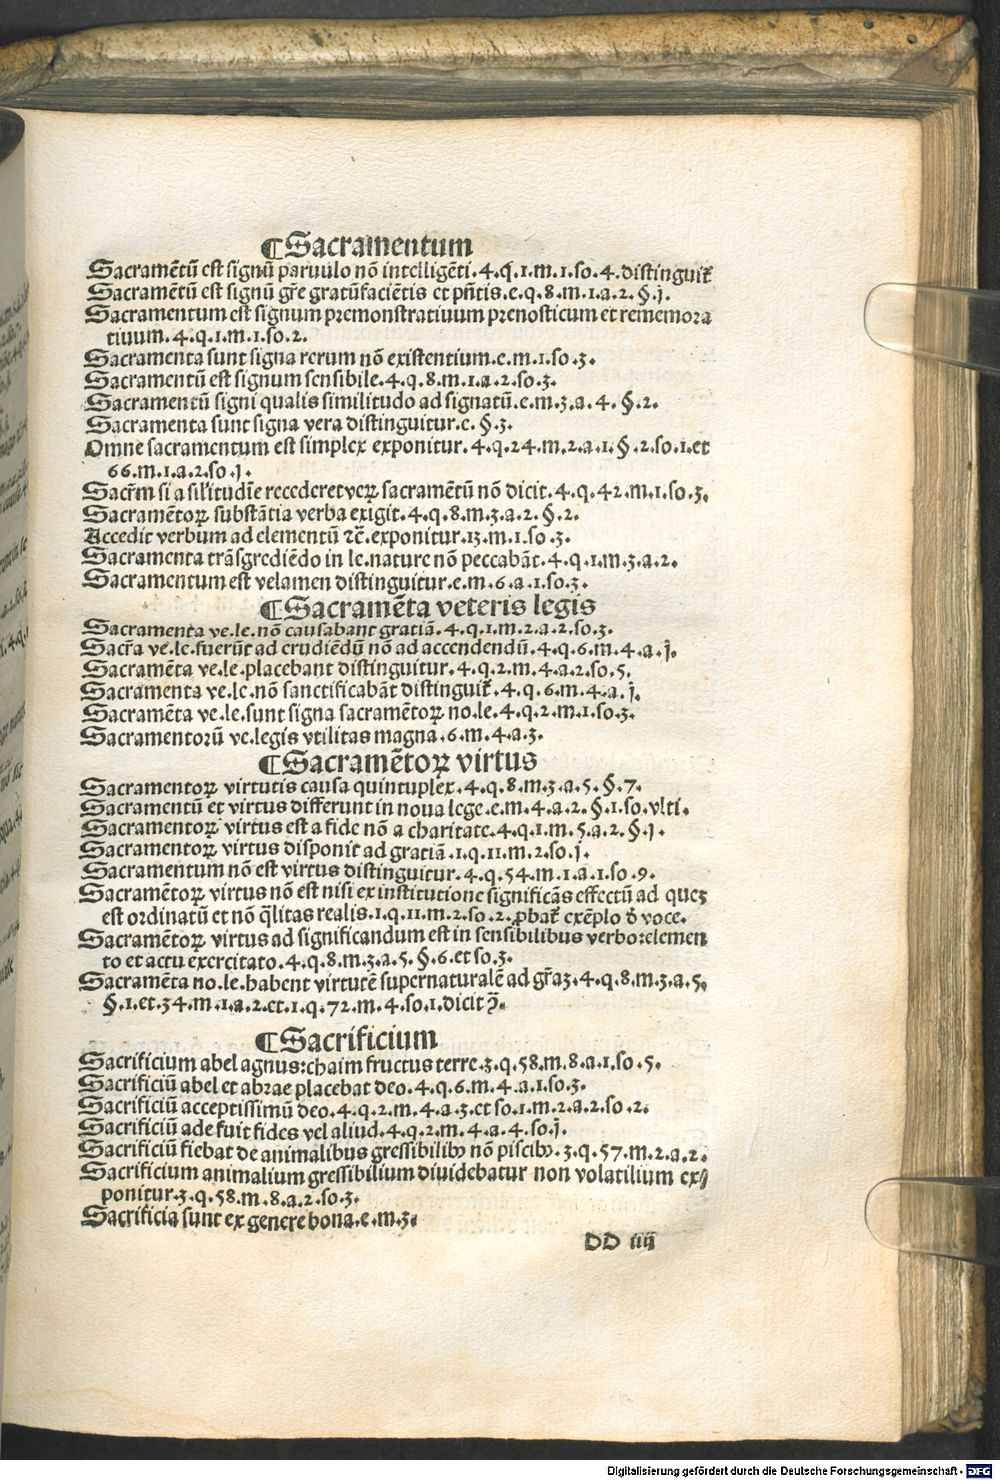 ¶Sacramentum
Sacramētū est signū paruulo nō intelligēti.4.q.1.m.1.so.4.distinguit᷑
Sacramētū est signū gr̄e gratūfaciētis et pn̄tis.e.q.8.m.1.a.2.§.j.
Sacramentum est signum premonstratiuum prenosticum et rememora
tiuum.4.q.1.m.1.so.2.
Sacramenta sunt signa rerum nō existentium.e.m.1.so.3.
Sacramentū est signum sensibile.4.q.8.m.1.a.2.so.3.
Sacramentū signi qualis similitudo ad signatū.e.m.3.a.4.§.2.
Sacramenta sunt signa vera distinguitur.e.§.3.
Omne sacramentum est simplex exponitur.4.q.24.m.2.a.1.§.2.so.1.et
66.m.1.a.2.so.j.
Sacr̄m si a silitudīe recederet veꝝ sacramētū nō dicit.4.q.42.m.1.so.3.
Sacramētoꝝ substātia verba exigit.4.q.8.m.3.a.2.§.2.
Accedit verbum ad elementū ⁊c̄.exponitur.13.m.1.so.3.
Sacramenta trāsgrediēdo in le.nature nō peccabāt.4.q.1.m.3.a.2.
Sacramentum est velamen distinguitur.e.m.6.a.1.so.3.
¶Sacramēta veteris legis
Sacramenta ve.le.nō causabant gratiā.4.q.1.m.2.a.2.so.3.
Sacr̄a ve.le.fuerūt ad erudiēdū nō ad accendendū.4.q.6.m.4.a.j.
Sacramēta ve.le.placebant distinguitur.4.q.2.m.4.a.2.so.5.
Sacramenta ve.le.nō sanctificabāt distinguit᷑.4.q.6.m.4.a.j.
Sacramēta ve.le.sunt signa sacramētoꝝ no.le.4.q.2.m.1.so.3.
Sacramentorū ve.legis vtilitas magna.6.m.4.a.3.
¶Sacramētoꝝ virtus
Sacramentoꝝ virtutis causa quintuplex.4.q.8.m.3.a.5.§.7.
Sacramentū et virtus differunt in noua lege.e.m.4.a.2.§.1.so.vlti.
Sacramentoꝝ virtus est a fide nō a charitate.4.q.1.m.5.a.2.§.j.
Sacramentoꝝ virtus disponit ad gratiā.1.q.11.m.2.so.j.
Sacramentum nō est virtus distinguitur.4.q.54.m.1.a.1.so.9.
Sacramētoꝝ virtus nō est nisi ex institutione significās effectū ad queꝫ
est ordinatū et nō q̄litas realis.1.q.11.m.2.so.2.ꝓbat᷑ exēplo d̄ voce.
Sacramētoꝝ virtus ad significandum est in sensibilibus verbo:elemen
to et actu exercitato.4.q.8.m.3.a.5.§.6.et so.3.
Sacramēta no.le.habent virtutē supernaturalē ad gr̄aꝫ.4.q.8.m.3.a.5.
§.1.et.34.m.1.a.2.et.1.q.72.m.4.so.1.dicit
¶Sacrificium
Sacrificium abel agnus:chaim fructus terre.3.q.58.m.8.a.1.so.5.
Sacrificiū abel et abrae placebat deo.4.q.6.m.4.a.1.so.3.
Sacrificiū acceptissimū deo.4.q.2.m.4.a.3.et so.1.m.2.a.2.so.2.
Sacrificiū ade fuit fides vel aliud.4.q.2.m.4.a.4.so.j.
Sacrificiū fiebat de animalibus gressibilibꝰ nō piscibꝰ.3.q.57.m.2.a.2.
Sacrificium animalium gressibilium diuidebatur non volatilium ex⸗
ponitur.3.q.58.m.8.a.2.so.3.
Sacrificia sunt ex genere bona.e.m.3.
DD iiij
Digitalisierung gefördert durch die Deutsche Forschungsgemeinschaft - DFG